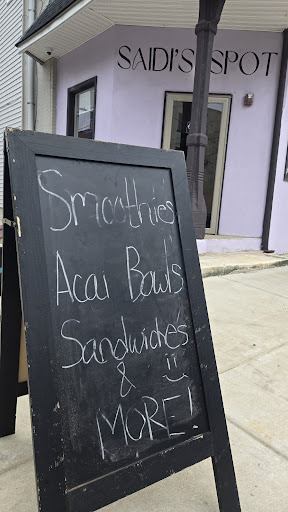 SAIDI'S SPOT
Smoothies
Acai Bowl's
Sandwiche's
&
MORE!